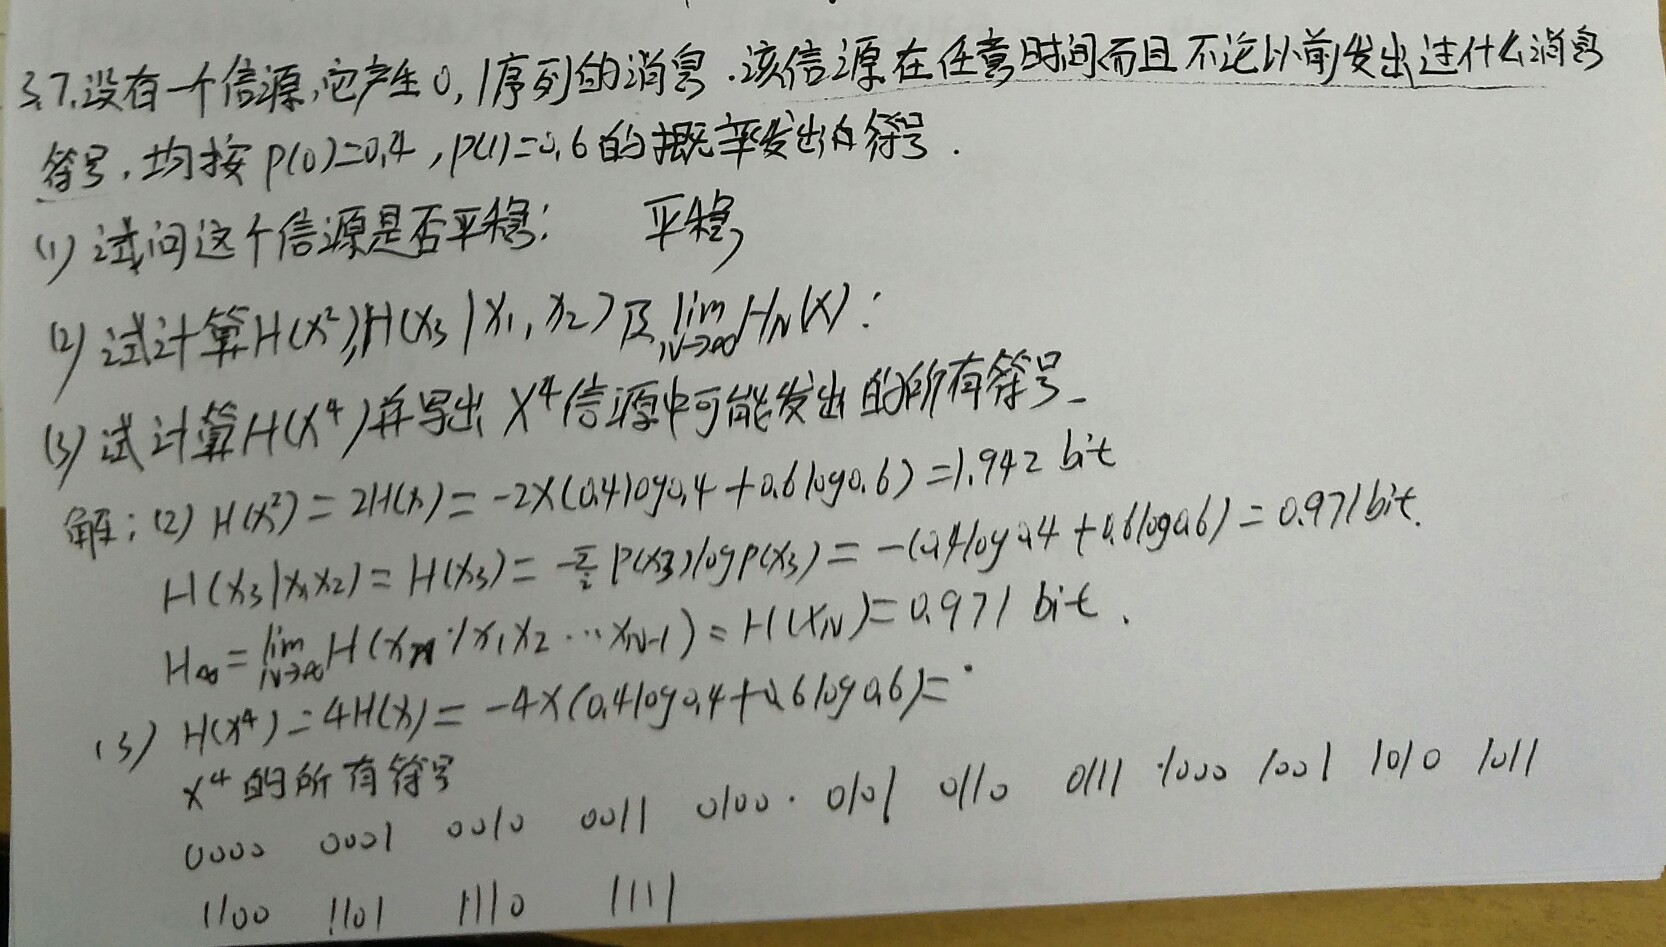 3.7.设有一个信源,它产生0,1序列的消息.该信源在任意时间而且不论以前发出过什么消息
符号,均按P(0)=0.4,P(1)=0.6的概率发出的符号.
(1)试问这个信源是否平稳: 平稳
(2)试计算H(X²),H(X₃|X₁,X₂)及lim N→∞ H_N(X):
(3)试计算H(X⁴)并写出X⁴信源中可能发出的所有符号.
解:(2) H(X²)=2H(X)=-2×(0.4log0.4+0.6log0.6)=1.942 bit
H(X₃|X₁X₂)=H(X₃)=-Σ i P(X₃)logP(X₃)=-(0.4log0.4+0.6log0.6)=0.971bit.
H∞=lim N→∞ H(X_N|X₁X₂…X_N-1)=H(X_N)=0.971 bit.
(3) H(X⁴)=4H(X)=-4×(0.4log0.4+0.6log0.6)=
X⁴的所有符号
0000 0001 0010 0011 0100 0101 0110 0111 1000 1001 1010 1011
1100 1101 1110 1111